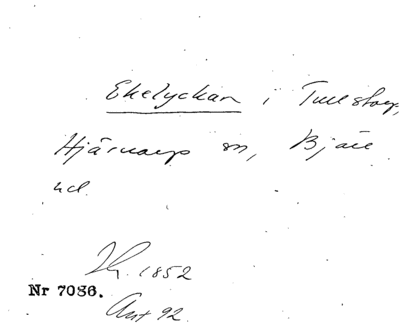 Ekelyckan i Tullstorp,
Hjärnarp sn, Bjäre
hd.
Th. 1852
Nr 7086.
Ant 92